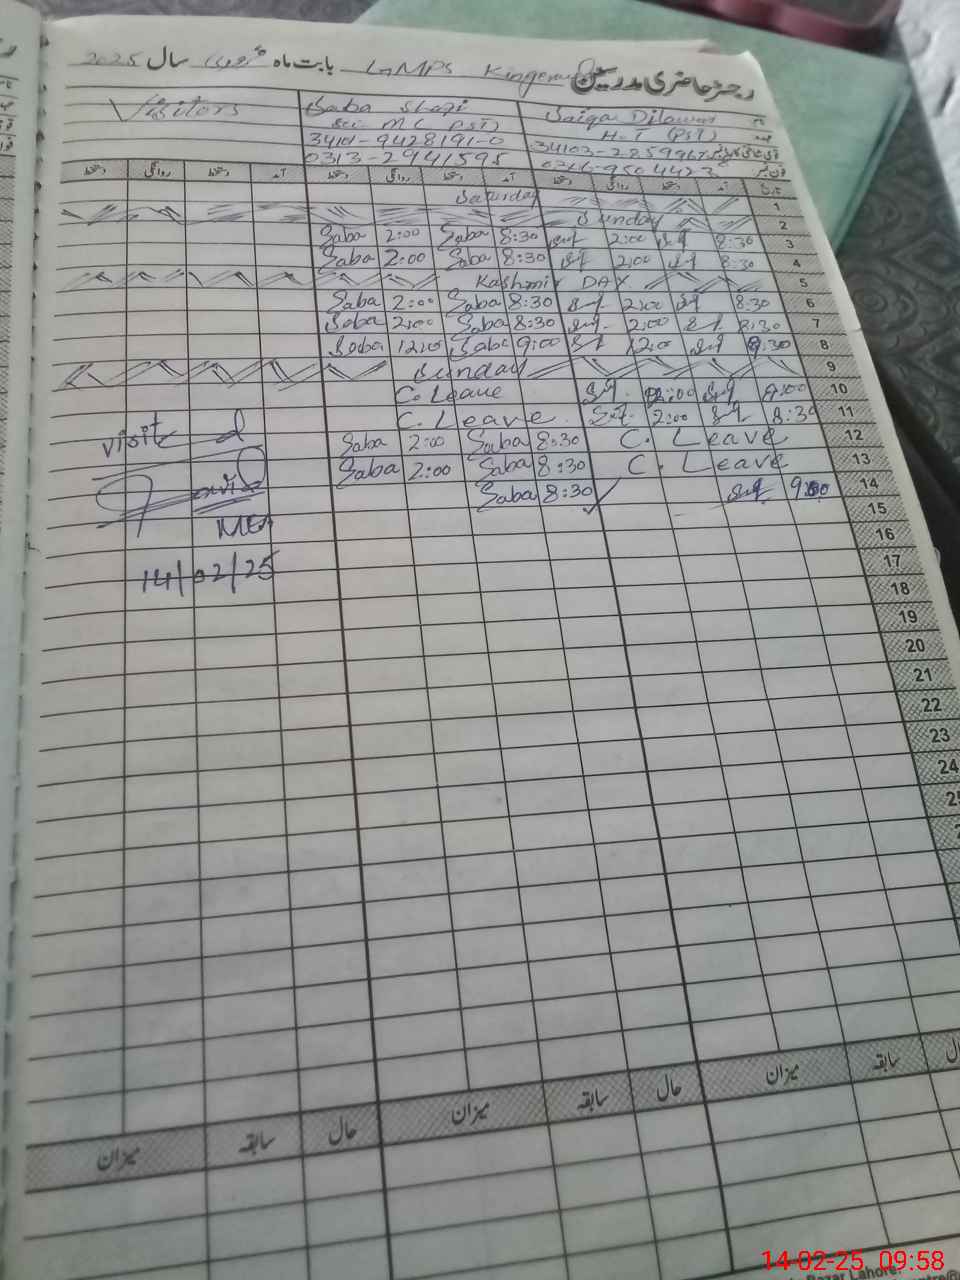 رجسٹر حاضری مدرسین GMPS بابت ماہ فروری سال 2025
نام Saiqa Dilawar Saba Shazi Visitors
عہدہ H-T (PST) MC (PST)
34101-9428191-0
فون نمبر 0313-2941595
تاریخ آمد دستخط روانگی دستخط آمد دستخط روانگی دستخط آمد دستخط روانگی دستخط
1 Saturday
2 Sunday
3 8:30 2:00 8:30 Saba 2:00 Saba
4 8:30 2:00 8:30 Saba 2:00 Saba
5 Kashmir DAY
6 8:30 2:00 8:30 Saba 2:00 Saba
7 8:30 2:00 8:30 Saba 2:00 Saba
8 12:00 9:00 Saba 12:00 Saba
9 Sunday
10 C. Leave
11 8:30 2:00 C. Leave
12 C. Leave 8:30 Saba 2:00 Saba
13 C. Leave 8:30 Saba 2:00 Saba
14 8:30 Saba
visited
15
16
14/02/25
17
18
19
20
21
22
23
24
حال سابقہ میزان حال سابقہ میزان
حال سابقہ میزان
14-02-25 09:58
Bazar Lahore.